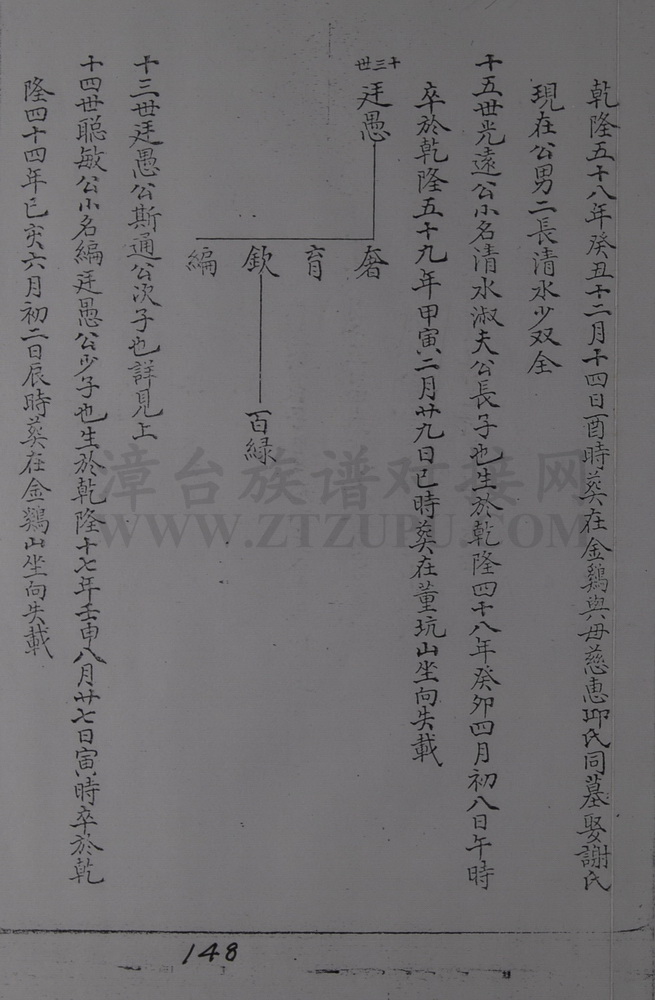 乾隆五十八年癸丑十二月十四日酉時葬在金鷄與母慈惠邱氏同墓娶謝氏
現在公男二長清水少双全
十五世光遠公小名清水淑夫公長子也生於乾隆四十八年癸卯四月初八日午時
卒於乾隆五十九年甲寅二月廿九日巳時葬在董坑山坐向失載
十三世
廷愚
奢
育
欽
編
百綠
十三世廷愚公斯通公次子也詳見上
十四世聪敏公小名編廷愚公少子也生於乾隆十七年壬申八月廿七日寅時卒於乾
隆四十四年己亥六月初二日辰時葬在金鷄山坐向失載
漳台族谱对接网
WWW.ZTZUPU.COM
148